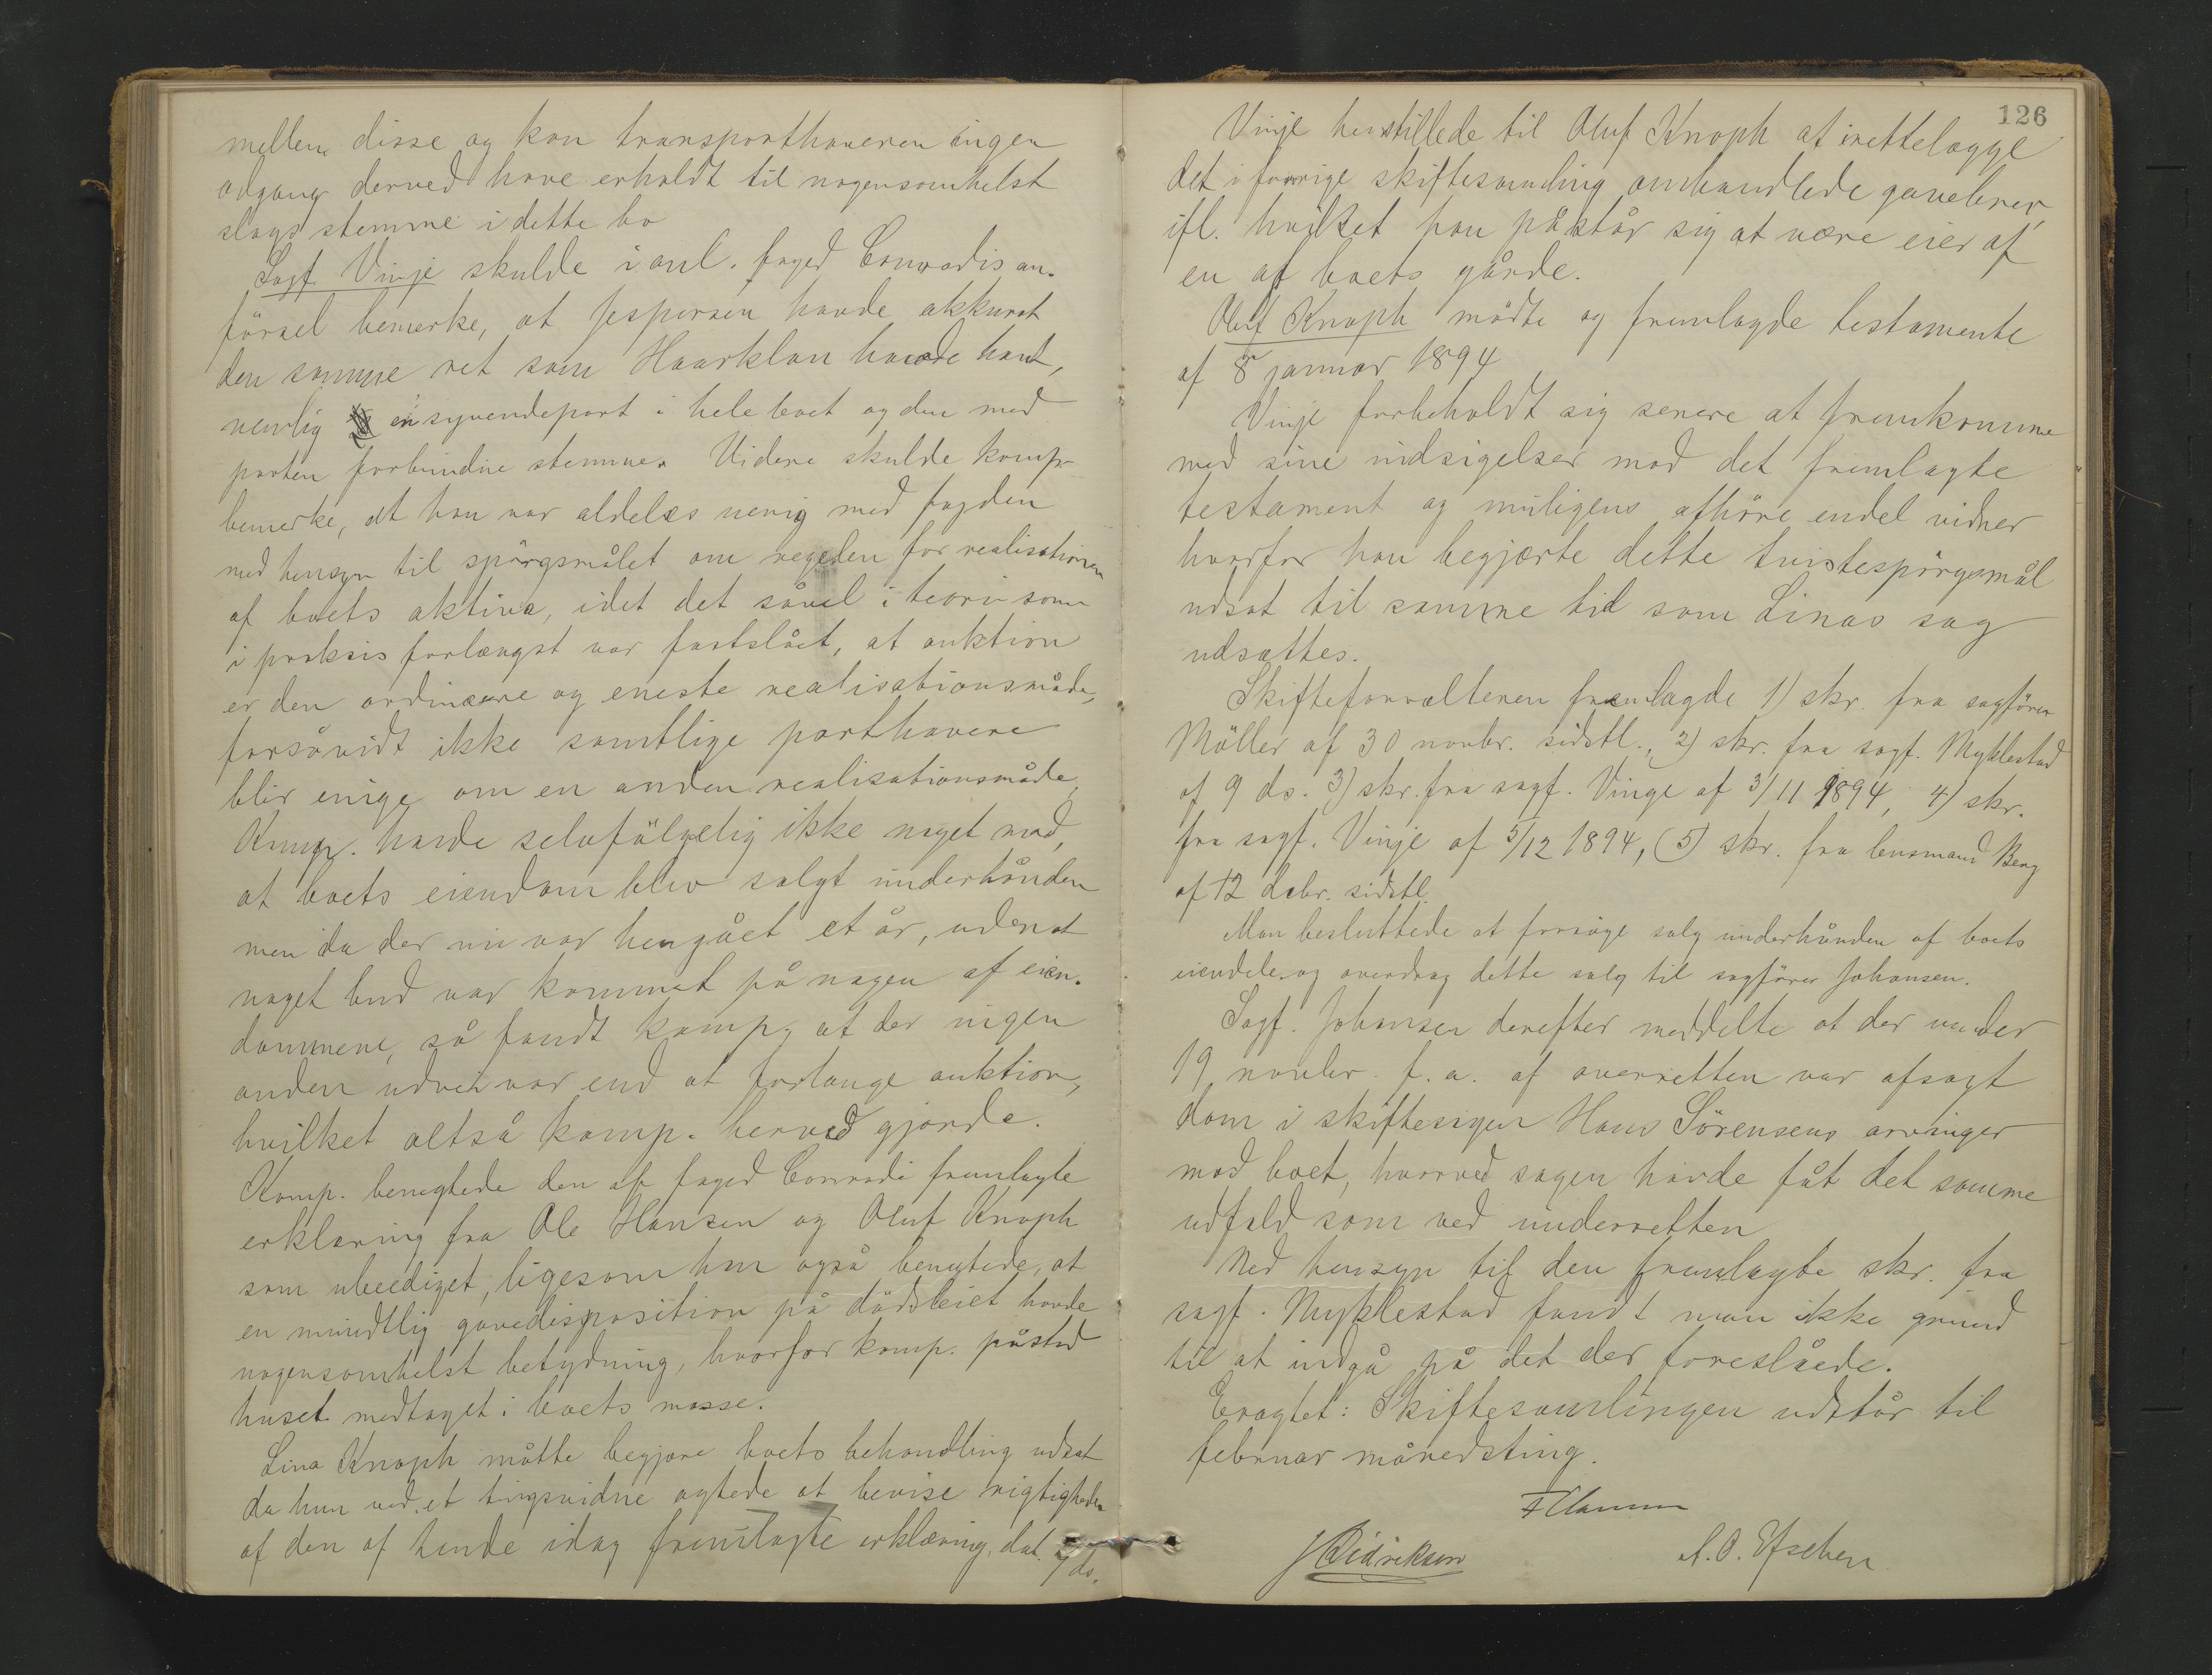 mellem disse og kan transporthaveren ingen
adgang derved have erholdt til nogensomhelst
slags stemme i dette bo
Sagf. Vinje skulde i anl. foged Conradis an-
försel bemerke, at Jespersen havde akkurat
den samme ret som Haarklou havde havt,
nemlig en syvendepart i hele boet og den med
parten forbundne stemme. Videre skulde komp
bemerke, at han var aldeles uenig med fogden
med hensyn til spörgsmålet om regelen for realisationen
af boets aktiva, idet det såvel i teori som
i praksis forlængst var fastslået, at auktion
er den ordinære og eneste realisationsmåde,
forsåvidt ikke samtlige parthavere
blir enige om en anden realisationsmåde,
Komp. havde selvfölgelig ikke noget mod,
at boets eiendom blev solgt underhånden
men da der nu var hengået et år, uden at
noget bud var kommet på nogen af eien-
dommene, så fandt komp. at der ingen
anden udvei var end at forlange auktion,
hvilket altså komp. herved gjorde.
Komp. benegtede den af foged Conradi fremlagte
erklæring fra Ole Hansen og Oluf Knoph
som ubeediget, ligesom han også benegtede, at
en mundtlig gavedisposition på dödsleiet havde
nogensomhelst betydning, hvorfor komp. påstod
huset medtaget i boets masse.
Lina Knoph måtte begjære boets behandling udsat
da hun ved et tingsvidne agtede at bevise rigtigheden
af den af hende idag fremlagte erklæring, dat. 9/ds.
126
Vinje henstillede til Oluf Knoph at irettelægge
det i forrige skiftesamling omhandlede gavebrev,
ifl. hvilket han påstår sig at være eier af
en af boets gårde.
Oluf Knoph mödte og fremlagde testamente
af 8 januar 1894
Vinje forbeholdt sig senere at fremkomme
med sine indsigelser mod det fremlagte
testament og muligens afhöre endel vidner
hvorfor han begjærte dette tvistespörgsmål
udsat til samme tid som Linas sag
udsættes.
Skifteforvalteren fremlagde 1) skr. fra sagförer
Möller af 30 novbr. sidstl., 2) skr. fra sagf. Myklestad
af 9 ds. 3) skr. fra sagf. Vinge af 3/11 1894, 4) skr.
fra sagf. Vinje af 5/12 1894, (5) skr. fra lensmand Berg
af 12 debr. sidstl.
Man besluttede at forsöge salg underhånden af boets
eiendele og overdrog dette salg til sagförer Johansen.
Sagf. Johansen derefter meddelte at der under
19 novbr. f. a. af overretten var afsagt
dom i skiftesagen Hans Sörensens arvinger
mod boet, hvorved sagen havde fåt det samme
udfald som ved underretten
Med hensyn til den fremlagte skr. fra
sagf. Myklestad fandt man ikke grund
til at indgå på det der foreslåede.
Eragtet: Skiftesamlingen udstår til
februar månedsting.
JDidriksen